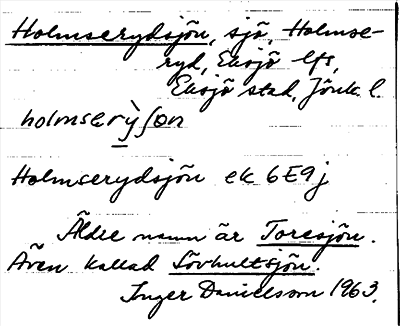 Holmserydsjön, sjö, Holmse-
ryd, Eksjö lfs,
Eksjö stad, Jönk. l.
holmserỳʃön
Holmserydsjön ek 6E9j
Äldre namn är Toresjön.
Även kallad Lövhultsjön.
Inger Danielsson 1963.